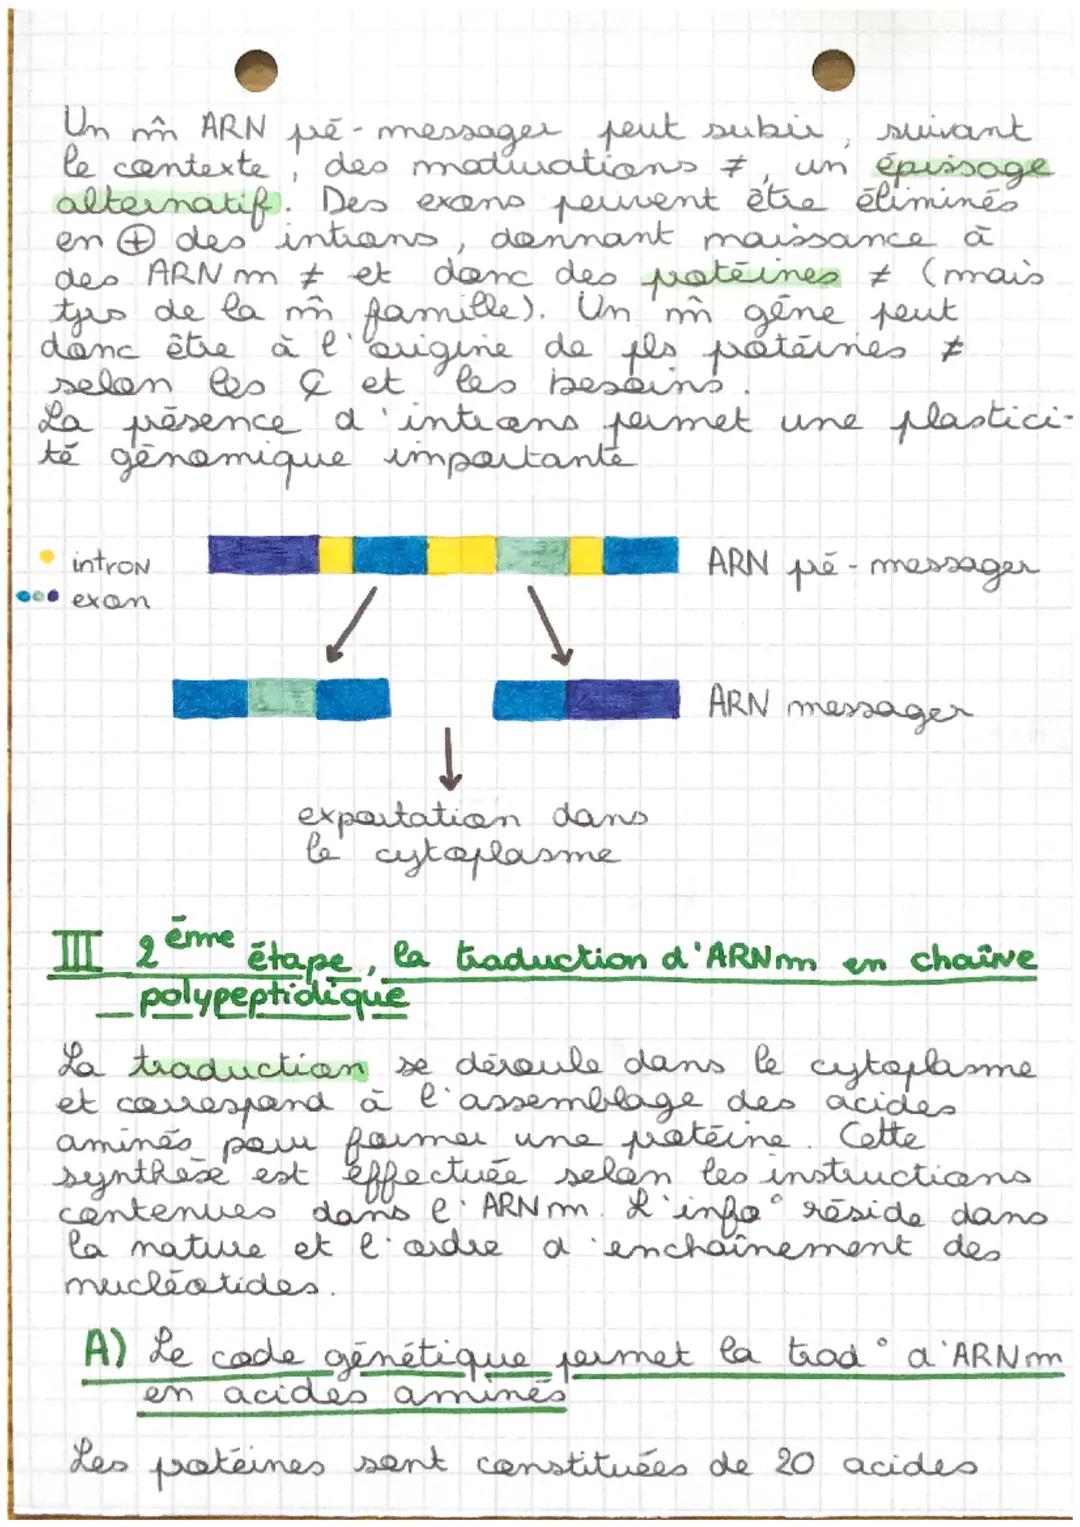 Un m̂ ARN pré-messager peut subir, suivant
le contexte, des maturations ≠, un épissage
alternatif. Des exons peuvent être éliminés
en ⊕ des introns, donnant naissance à
des ARNm ≠ et donc des protéines ≠ (mais
tjrs de la m̂ famille). Un m̂ gène peut
donc être à l'origine de pls protéines ≠
selon les ₵ et les besoins.
La présence d'introns permet une plastici-
té génomique importante
intron
exon
ARN pré-messager
ARN messager
exportation dans
le cytoplasme
III 2ème étape, la traduction d'ARNm en chaîne
polypeptidique
La traduction se déroule dans le cytoplasme
et correspond à l'assemblage des acides
aminés pour former une protéine. Cette
synthèse est éffectuée selon les instructions
contenues dans l'ARNm. L'info° réside dans
la nature et l'ordre d'enchaînement des
nucléotides.
A) Le code génétique permet la trad° d'ARNm
en acides aminés
Les protéines sont constituées de 20 acides